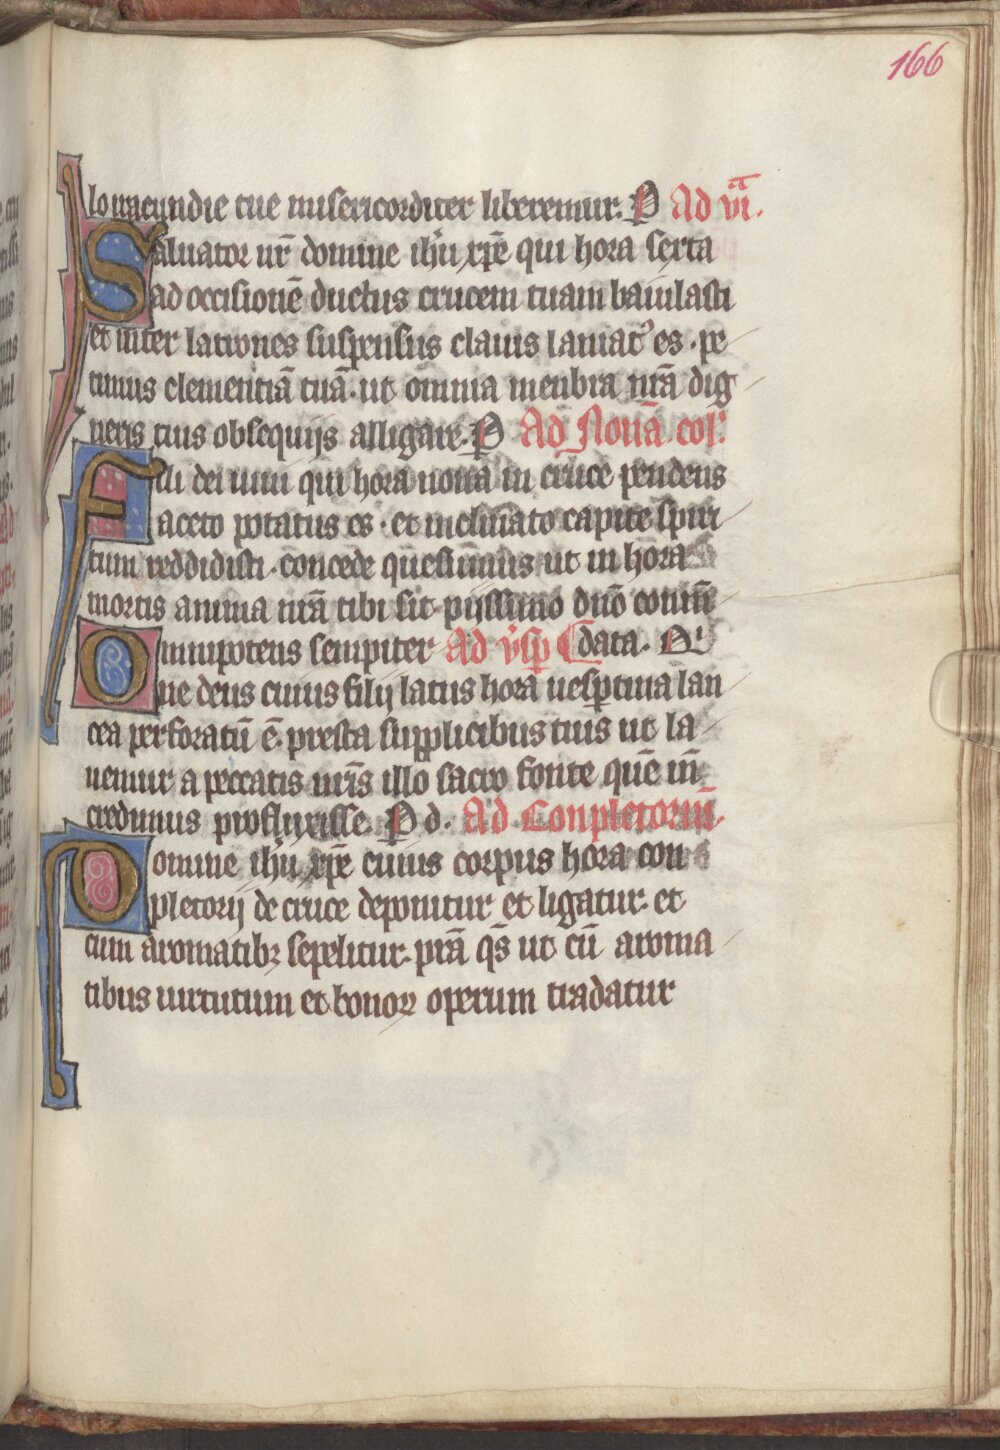 166
lo iracundie tue misericorditer liberemur. P Ad vi.ᵃ
Saluator nr̄ domine ih̄u xp̄e qui hora sexta
ad occisionē ductus crucem tuam baiulasti
et inter latrones suspensus clauis laniat᾽ es · pe
timus clementiā tuā · ut omnia menbra nr̄a dig
neris tuis obsequijs alligare. P Ad Nonā. col'.
Fili dei uiui qui hora nona in cruce pendens
aceto potatus es · et inclinato capite spiri
tum reddidisti · concede quesumus ut in hora
mortis anima nr̄a tibi sit pijssimo dn̄o
Omnipotens sempiter Ad v̄sp̄ data.
ne deus cuius filij latus hora uesp̄tina lan
cea perforatū ē. presta supplicibus tuis ut la
uemur a peccatis nr̄is illo sacro fonte quē īn
credimus profluxisse. P d. Ad Conpletoriū.
Domine ih̄u xp̄e cuius corpus hora con
pletorij de cruce deponitur et ligatur et
cum aromatibꝫ sepelitur. pr̄a q̄s ut cū aroma
tibus uirtutum et bonoꝝ operum tradatur